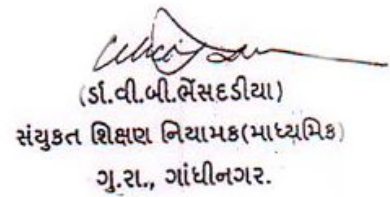 (ડૉ.વી.બી.ભેંસદડીયા)
સંયુકત શિક્ષણ નિયામક(માધ્યમિક)
ગુ.રા., ગાંધીનગર.